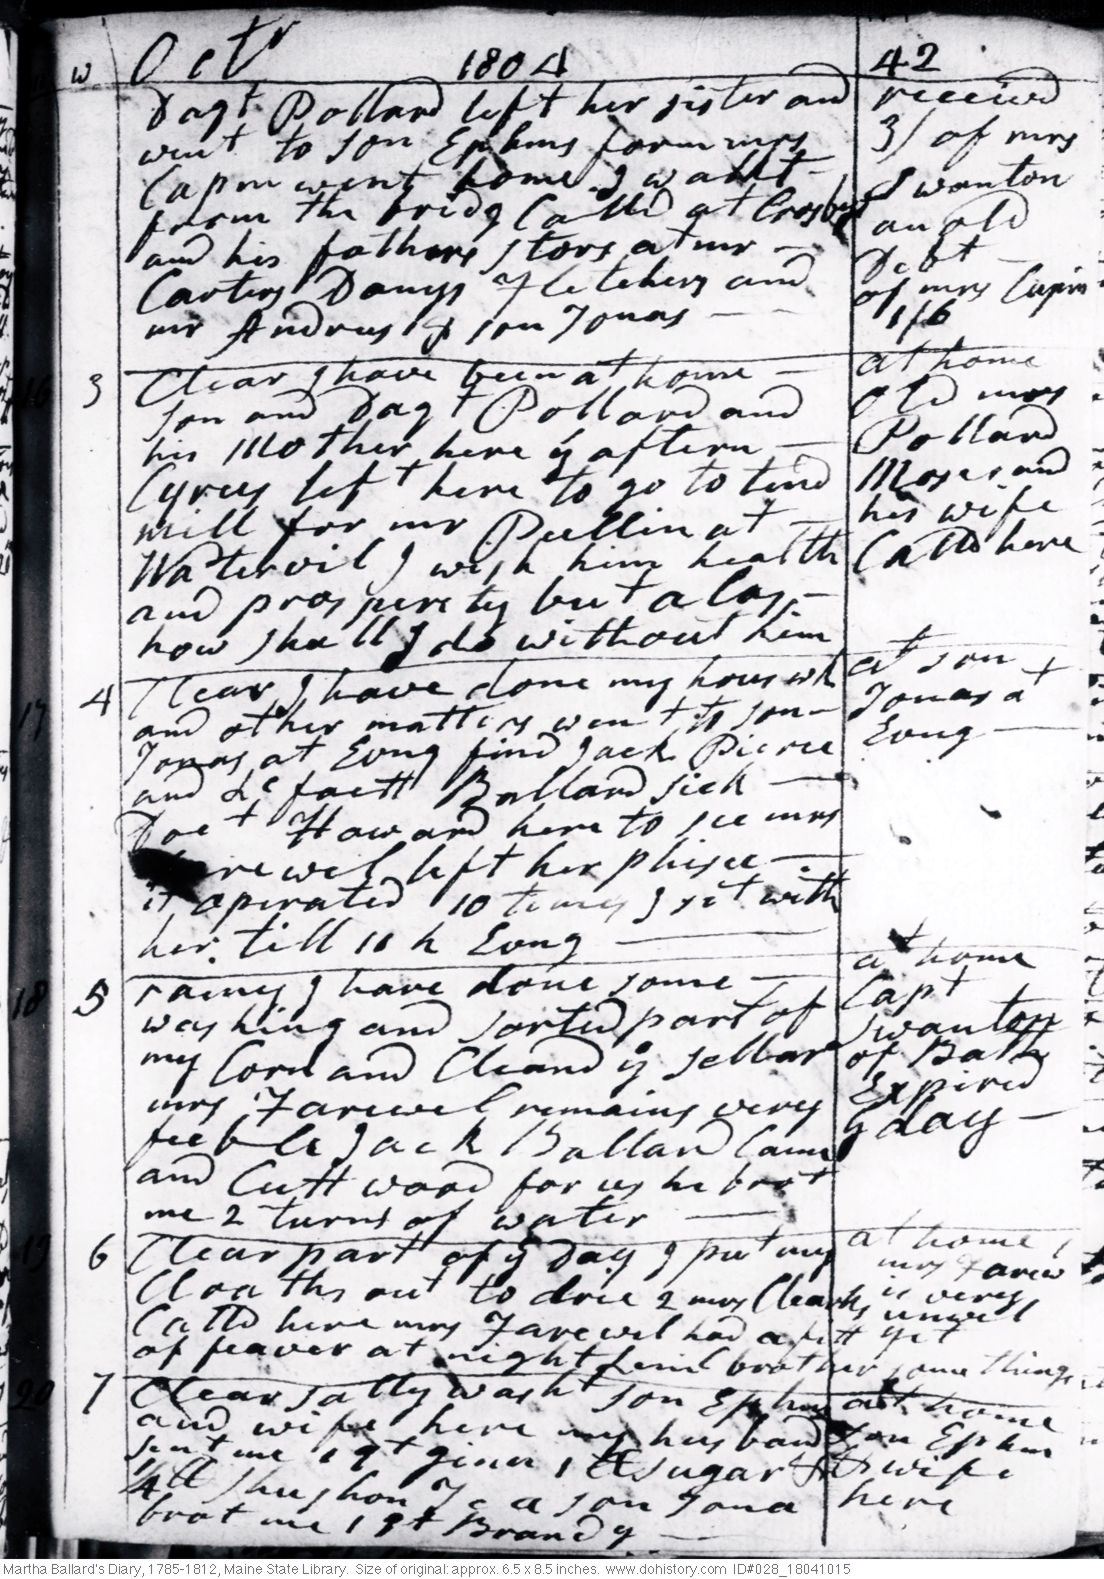 w Octr 1804 42
Dagt Pollard left her sister and
went to son Ephms form mrs
Capin went home. I wallt
form the bridg Calld at Crosbys
and his fathers stors at mr
Carters Danys Fletchers and
mr Andrus & son Jonas
received
3/ of mrs
Swanton
an old
Debt
of mrs Capin
1/6
16 3 Clear I have been at home
son and Dagt Pollard and
his Mother here ys aftern
Cyrus left here to go to tend
mill for mr Pullin at
Watervil I wish him health
and prosperety but alas
how shall I do without him
at home
old mrs
Pollard
Moses and
his wife
Calld here
17 4 Clear I have done my hous wk
and other matters went to son
Jonas at Evng find Jack Pierce
and Lt faett Ballard sick
Doct Howard here to see mrs
left her phisee
it operated 10 times I set with
her till 11 h Evng
at son
Jonas at
Evng
18 5 rainy I have done some
washing and sorted part of
my Corn and Cleand ys sellar
mrs Farewel remains very
feeble Jack Ballard Came
and Cutt wood for us he brot
me 2 turns of water
at home
Capt
Swanton
of Bath
Expired
ys day
19 6 Clear part of ys Day I put my
Cloaths out to drie 2 mrs Clearks
Calld here mrs Farewel had a fitt
of feaver at night brother some things
at home
mrs Farew
is very
unwel
yet
20 7 Clear sally washt son Ephm
and wife here my husband
sent me 1 qt ginn 1 lb sugar
1/4 lb Shushon Te a son Jona
brot me 1 qt Brandy
at home
son Ephm
& wife
here
Martha Ballard's Diary, 1785-1812, Maine State Library. Size of original: approx. 6.5 x 8.5 inches. www.dohistory.com ID#028_18041015